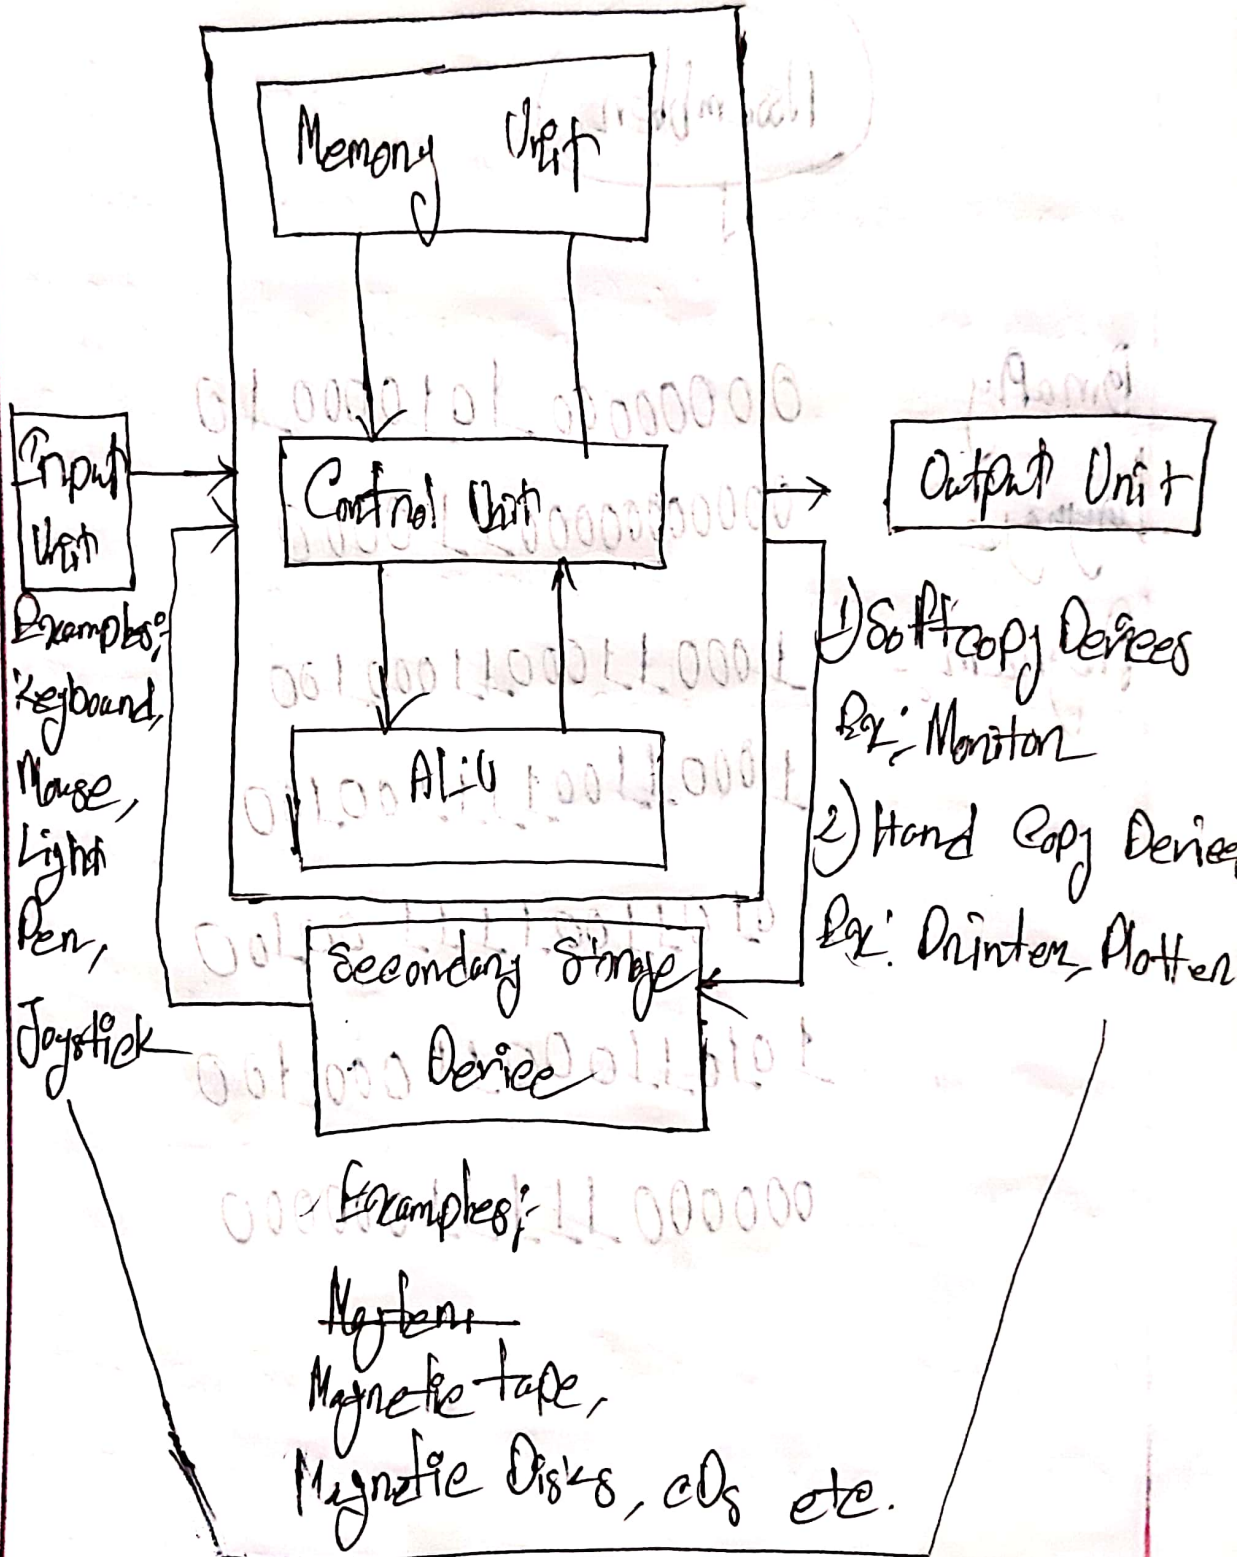 Memory Unit
Input
Unit
Control Unit
Output Unit
Examples:-
Keyboard,
Mouse,
Light
Pen,
Joystick
ALU
1) Softcopy Devices
Ex:- Monitor
2) Hard Copy Devices
Ex: Printer, Plotter
Secondary Storage
Device
Examples:-
Magnetic tape,
Magnetic Disks, CDs etc.